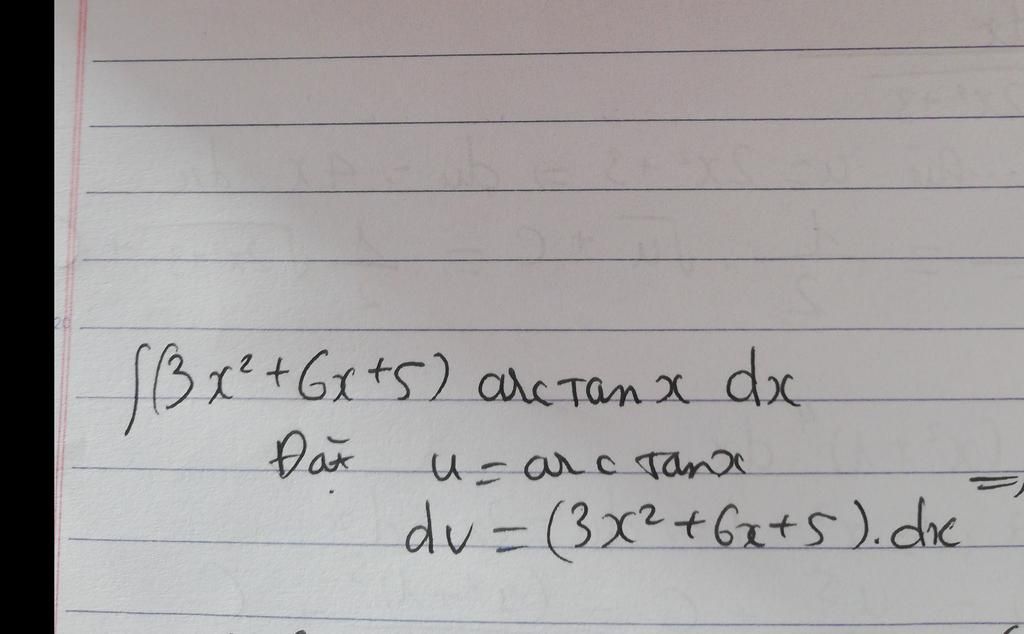 ∫(3x²+6x+5) arctan x dx
Đặt u = arc tanx
dv = (3x²+6x+5).dx =>